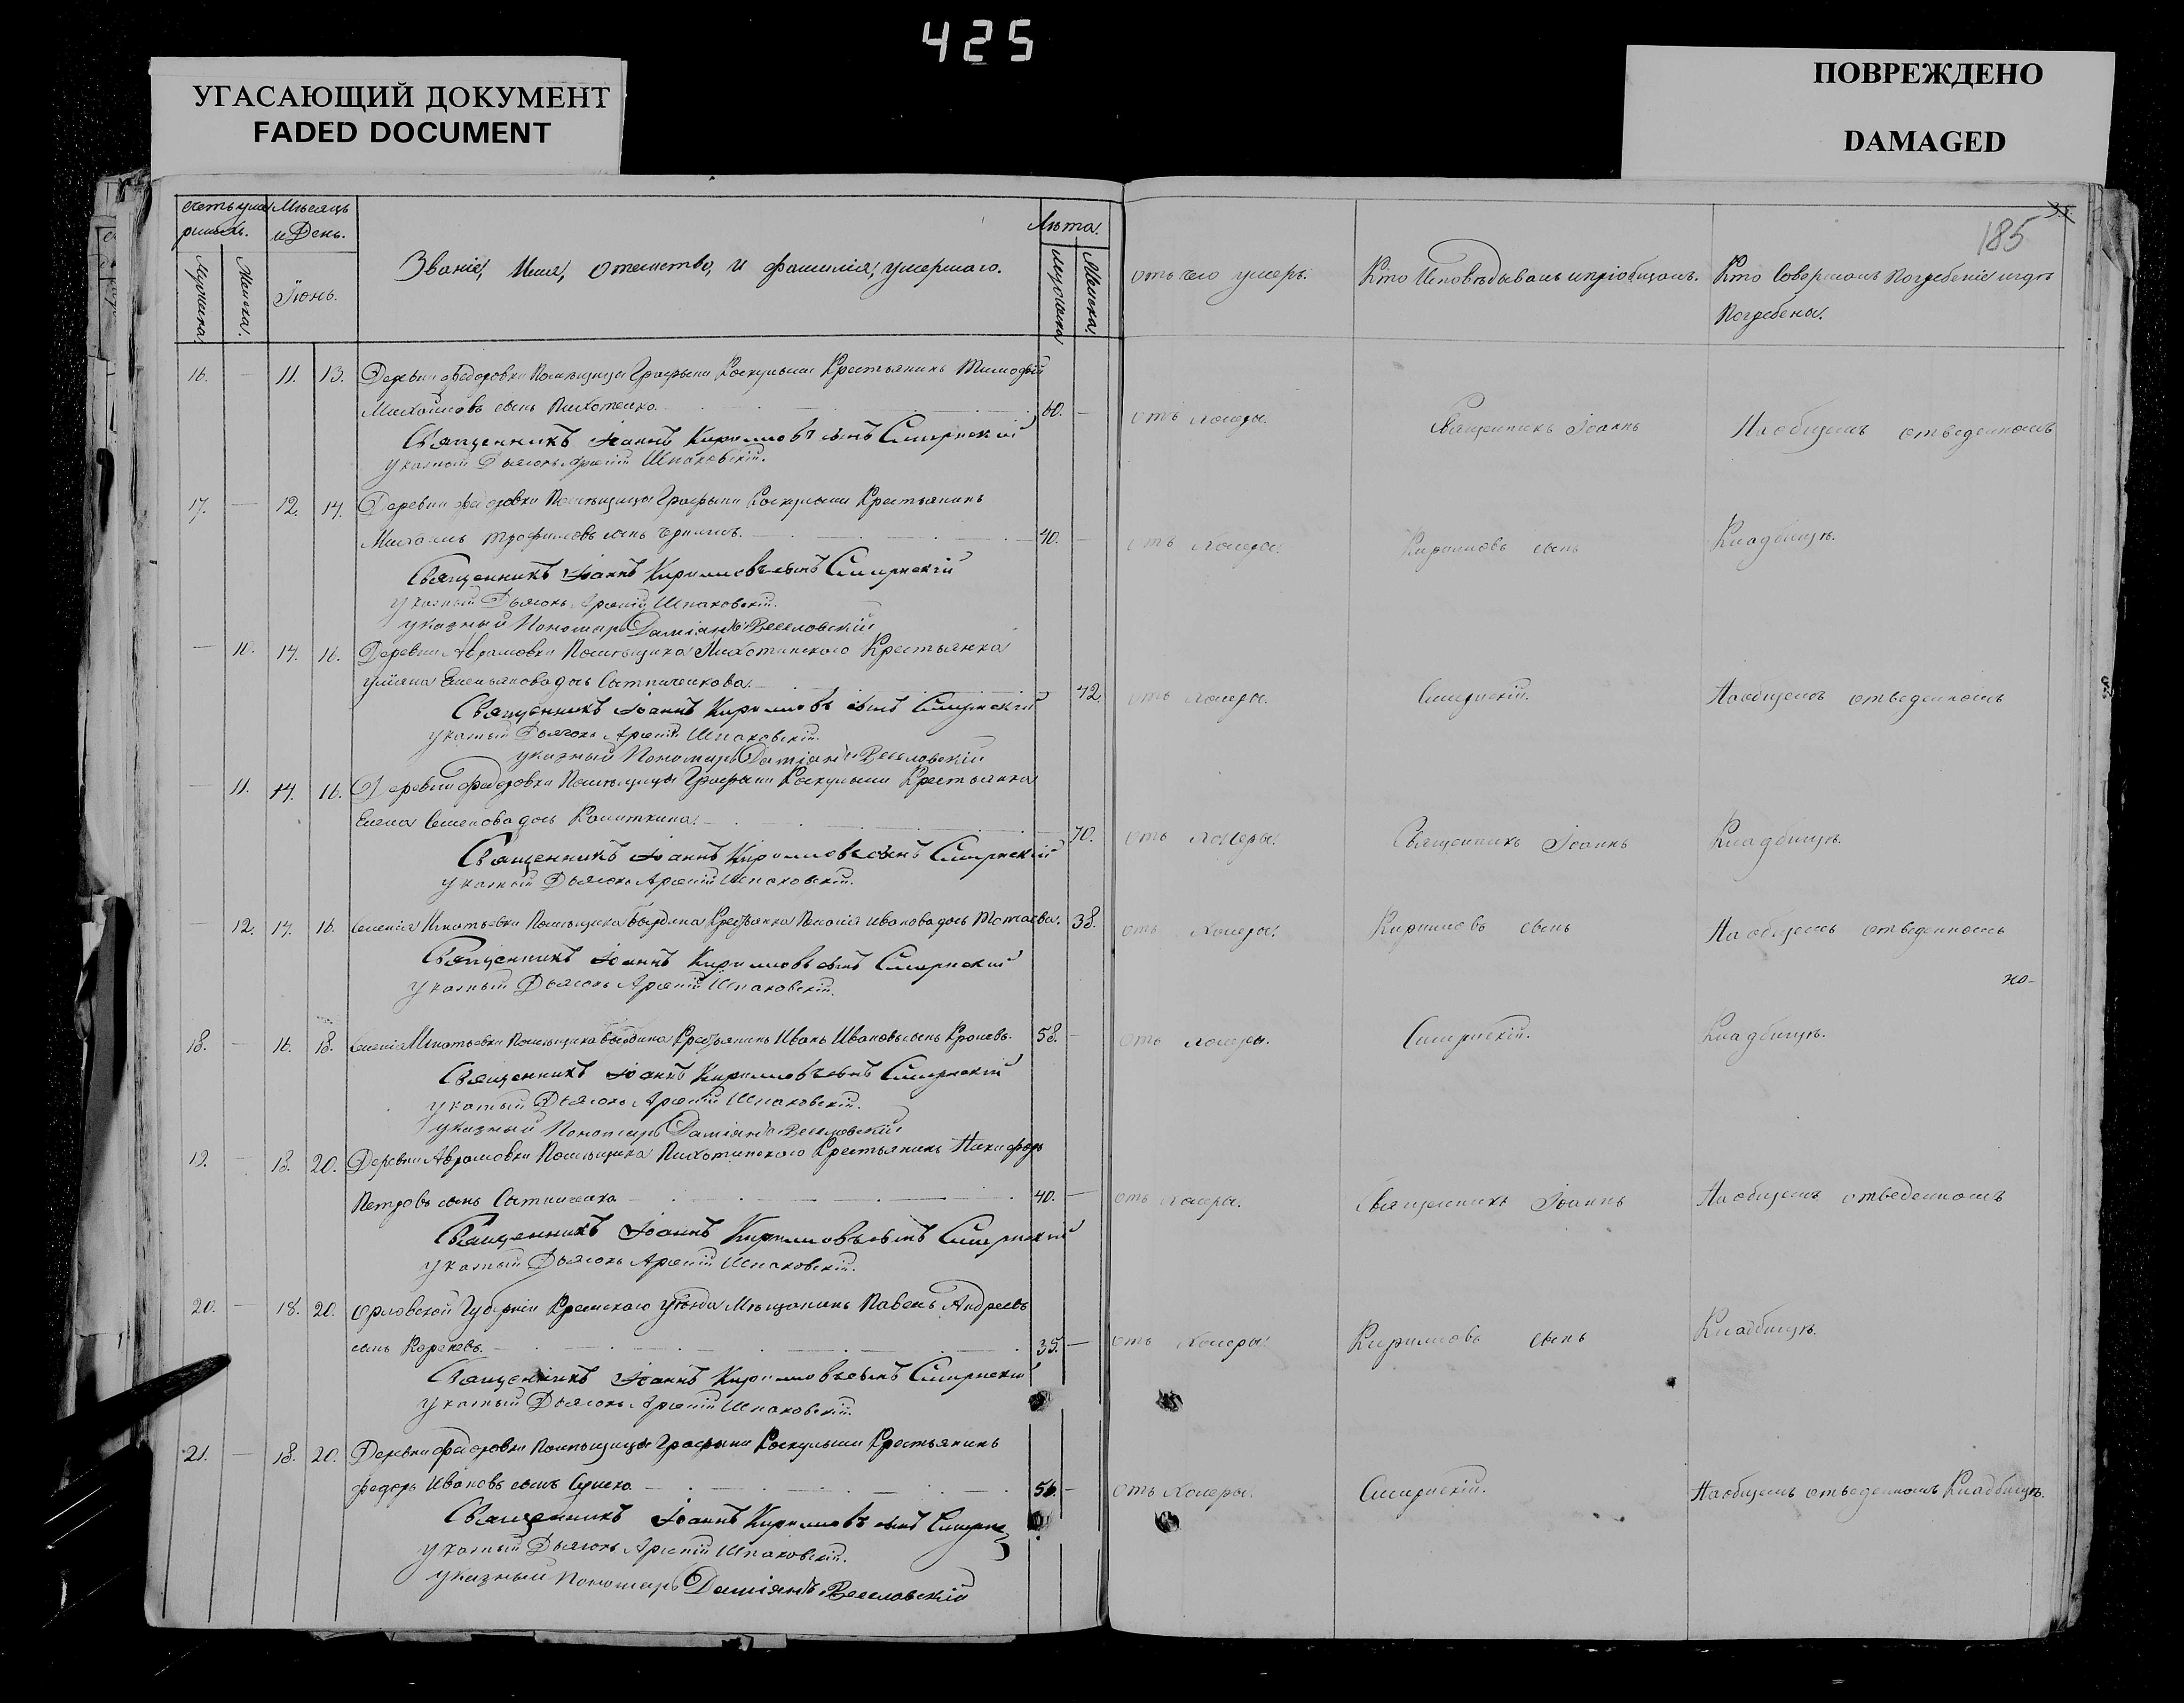 425
УГАСАЮЩИЙ ДОКУМЕНТ
FADED DOCUMENT
ПОВРЕЖДЕНО
DAMAGED
185
Счетъ умершихъ.
Мѣсяцъ и День.
Званіе, Имя, отечество, и фамилія, умершаго.
Лѣта.
отъ чего умеръ.
Кто Исповѣдывалъ и пріобщалъ.
Кто Совершалъ Погребеніе и гдѣ
Погребены.
Мужска.
Женска.
Іюнь.
Мужска
Женска.
16. — 11. 13. Деревни Федоровки Помѣщицы Графыни Крестьянинъ Тимофей
Михайловъ сынъ Пихотенко. 60. — отъ холеры. Священникъ Іоаннъ На общемъ отведенномъ
Священникъ Іоаннъ Кирилловъ сынъ Смирнскій
указный Дьячокъ Арсеній Шпаковскій.
17. — 12. 14. Деревни Федоровки Помѣщицы Графыни Крестьянинъ
Михаилъ Трофимовъ сынъ 40. отъ холеры. Кирилловъ сынъ Кладбищѣ.
Священникъ Іоаннъ Кирилловъ сынъ Смирнскій
указный Дьячокъ Арсеній Шпаковскій.
указный Пономарь Даміанъ Веселовскій
— 10. 14. 16. Деревни Аврамовки Помѣщика Пихотинского Крестьянка
Уліяна Емельянова дочь Сотниченкова. 42. отъ холеры. Смирнскій. На общемъ отведенномъ
Священникъ Іоаннъ Кирилловъ сынъ Смирнскій
указный Дьячокъ Арсеній Шпаковскій.
указный Пономарь Даміанъ Веселовскій
— 11. 14. 16. Деревни Федоровки Помѣщицы Графыни Крестьянка
Елена Семенова дочь Калиткина. 70. отъ холеры. Священникъ Іоаннъ Кладбищѣ.
Священникъ Іоаннъ Кирилловъ сынъ Смирнскій
указный Дьячокъ Арсеній Шпаковскій.
— 12. 14. 16. Селенія Игнатьевки Помѣщика Крестьянка Иванова дочь 38. отъ холеры. Кирилловъ сынъ На общемъ отведенномъ
Священникъ Іоаннъ Кирилловъ сынъ Смирнскій
указный Дьячокъ Арсеній Шпаковскій.
но-
18. — 16. 18. Селенія Игнатьевки Помѣщика Крестьянинъ Иванъ Ивановъ сынъ 58. — отъ холеры. Смирнскій. Кладбищѣ.
Священникъ Іоаннъ Кирилловъ сынъ Смирнскій
указный Дьячокъ Арсеній Шпаковскій.
указный Пономарь Даміанъ Веселовскій
19. — 18. 20. Деревни Аврамовки Помѣщика Пихотинского Крестьянинъ Никифоръ
Петровъ сынъ Сотниченко 40. — отъ холеры. Священникъ Іоаннъ На общемъ отведенномъ
Священникъ Іоаннъ Кирилловъ сынъ Смирнскій
указный Дьячокъ Арсеній Шпаковскій.
20. — 18. 20. Орловской Губерніи Кромскаго уѣзда Мѣщанинъ Павелъ Андреевъ
сынъ 35. — отъ холеры. Кирилловъ сынъ Кладбищѣ.
Священникъ Іоаннъ Кирилловъ сынъ Смирнскій
указный Дьячокъ Арсеній Шпаковскій.
21. — 18. 20. Деревни Федоровки Помѣщицы Графыни Крестьянинъ
Федоръ Ивановъ сынъ 56. — отъ холеры. Смирнскій. На общемъ отведенномъ Кладбищѣ.
Священникъ Іоаннъ Кирилловъ сынъ
указный Дьячокъ Арсеній Шпаковскій.
указный Пономарь Даміанъ Веселовскій